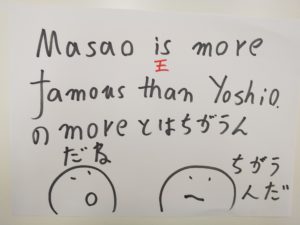 Masao is more
王
famous than Yoshio.
の more とはちがうん
だね
ちがう
んだ